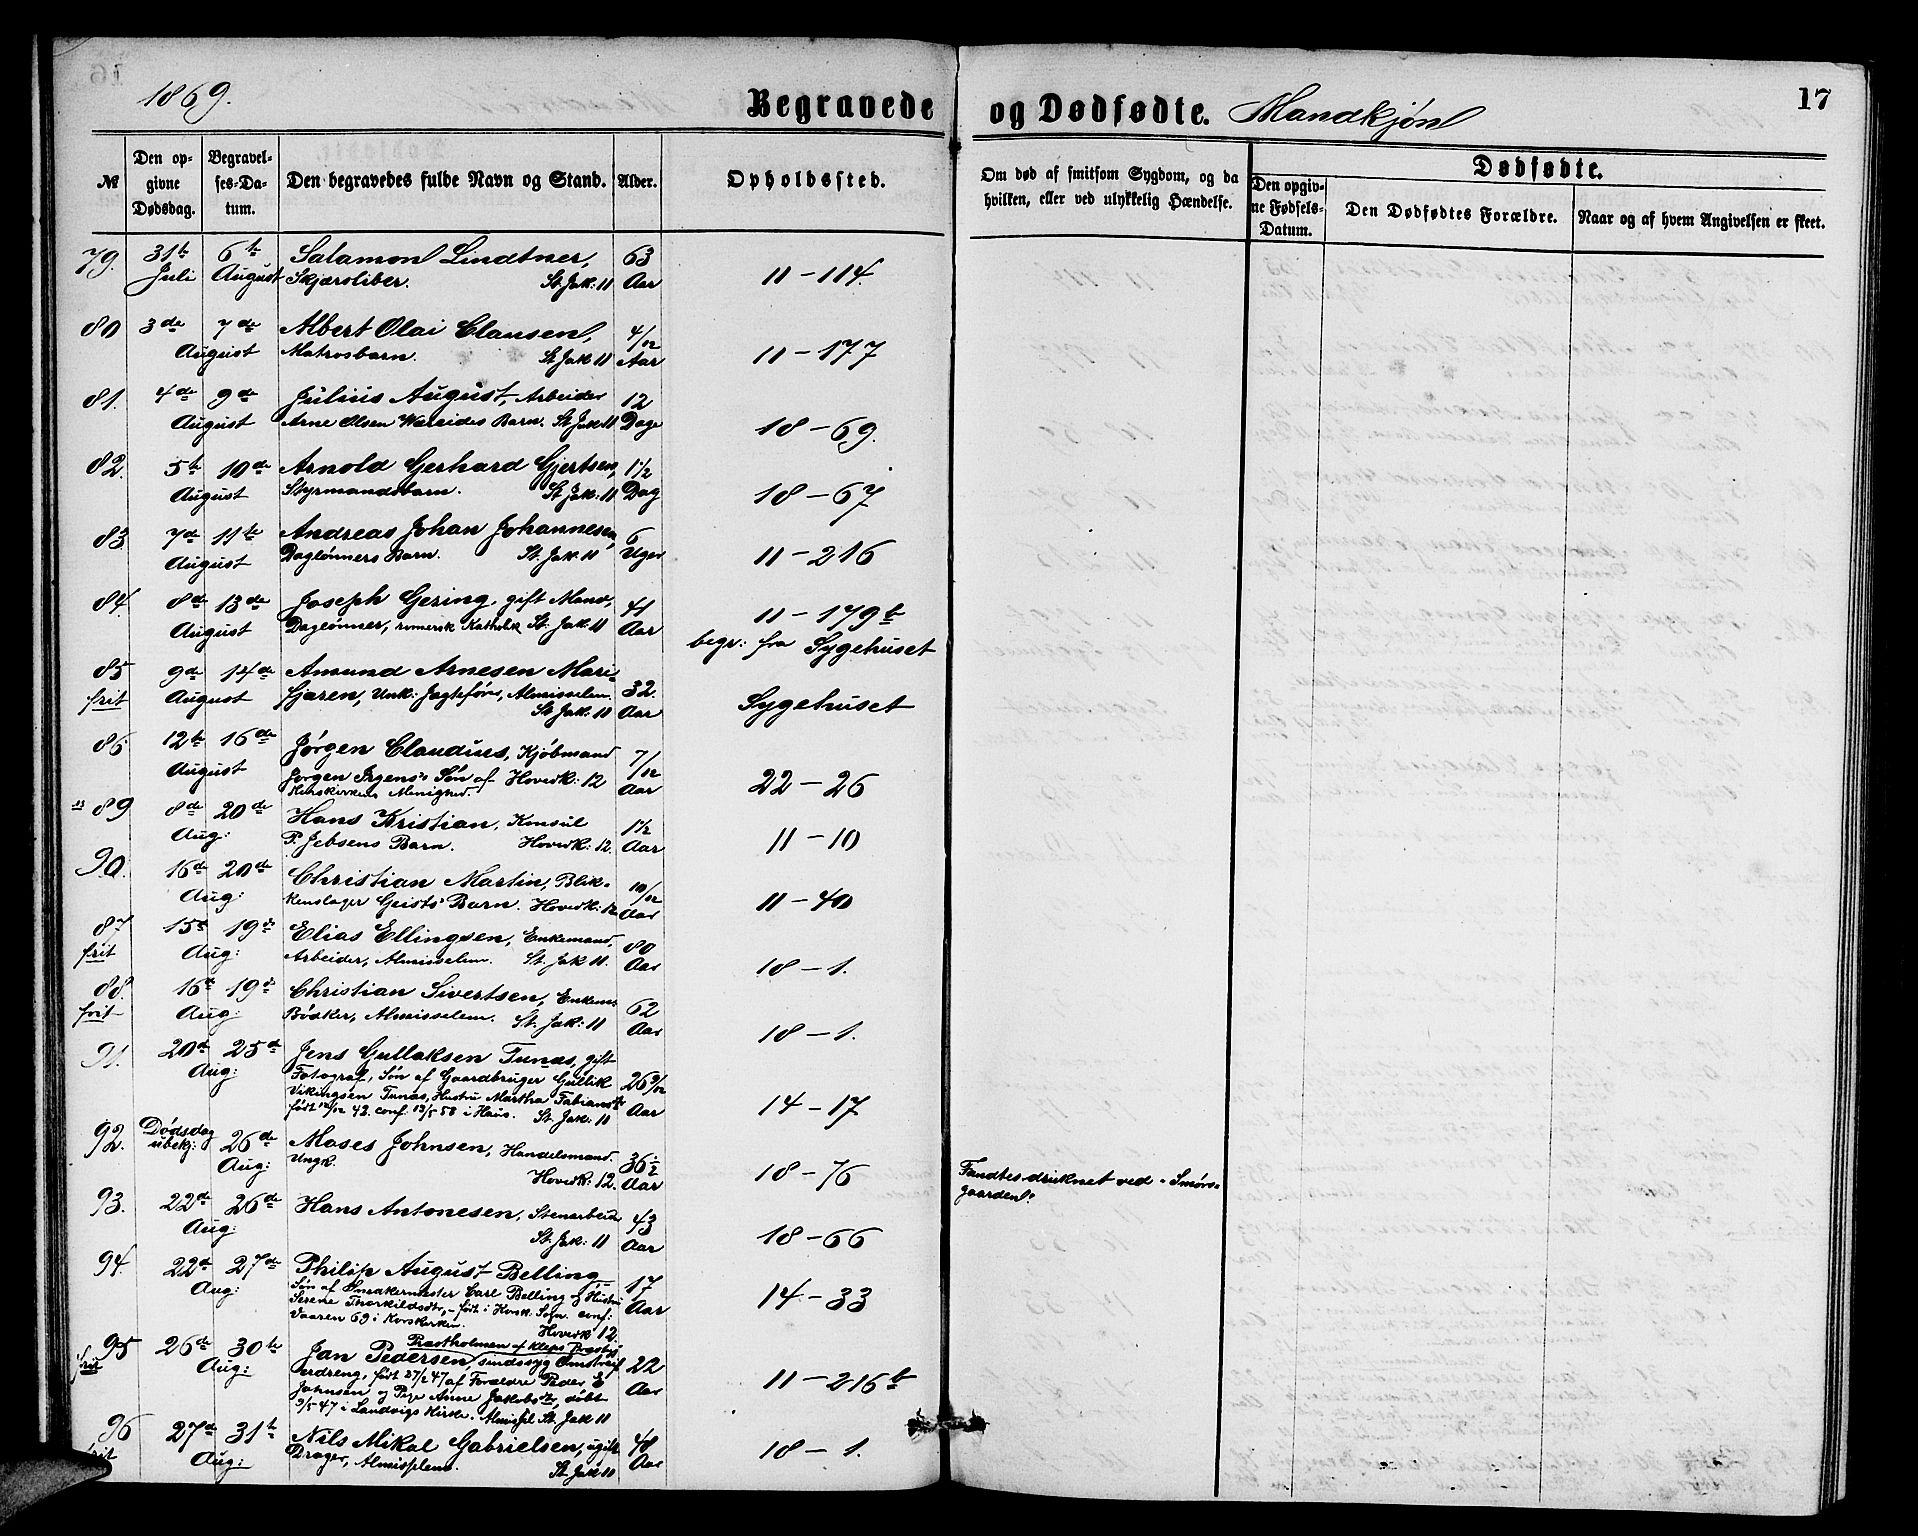 1869.
Begravede og Dødfødte. Mandkjøn
17
№
Den opgivne Dødsdag.
Begravelses-Datum.
Den begravedes fulde Navn og Stand.
Alder.
Opholdssted.
Om død af smitsom Sygdom, og da hvilken, eller ved ulykkelig Hændelse.
Dødfødte.
Den opgivne Fødsels-Datum.
Den Dødfødtes Forældre.
Naar og af hvem Angivelsen er skeet.
79. 31te 6te Salamon Lindtner, 63
Juli August Skjærsliber. St. Jak: 11 Aar 11 – 114.
80 3de 7de Albert Olai Clausen, 4/12
August Matrosbarn. St. Jak 11 Aar 11 – 177
81. 4de 9de Julius August, Arbeider 12
August Arne Olsen Wareides Barn. St. Jak 11 Dage 18 – 69.
82. 5te 10de Arnold Gerhard Gjertsen, 1 1/2
August Styrmandsbarn. St. Jak: 11 Dag 18 – 67
83 7de 11te Andreas Johan Johannesen, 6
August Daglønners Barn. St. Jak. 11 Uger 11 – 216
84. 8de 13de Joseph Gering, gift Mand, 41 11 – 179b
August Daglønner, romersk Katholik St. Jak 11 Aar begr: fra Sygehuset
85 9de 14de Amund Arnesen Mari-
frit August fjæren, Unk: Jagtefører, Almisselem. 32.
St. Jak. 11 Aar Sygehuset
86 12te 16de Jørgen Claudius, Kjøbmand 7/12
August Jørgen Irgens's Søn af Hovedk: 12 Aar 22 – 26
Korskirkens Menighed.
89 8de 20de Hans Kristian, Konsul 1 1/2
Aug: P. Jebsens Barn. Hovedk: 12. Aar 11 – 10
90. 16de 20de Christian Martin, Blik- 10/12
Aug: kenslager Geists' Barn. Hovedk: 12 Aar 11 – 40
87 15de 19de Elias Ellingsen, Enkemand, 80
frit Aug: Arbeider, Almisselem. St. Jak 11. Aar 18 – 1.
88. 16de 19de Christian Sivertsen, Enkem: 62
frit Aug: Bødker, Almisselem. St. Jak: 11 Aar 18 – 1.
91. 20de 25de Jens Gullaksen Tunæs, gift
Aug: Fotograf, Søn af Gaardbruger Gullik 26 9/12
Vikingsen Tunæs, Hustru Martha Fabiansdtr Aar
født 12/12 42. conf. 13/5 58 i Haus. St. Jak: 11 14 – 17
92. Dødsdag ubekj: 26de Moses Johnsen, Handelsmand. 36 1/2
Aug: Ungk. Hovedk: 12. Aar 18 – 76 Fandtes druknet ved "Smørs-
gaarden".
93. 22de 26de Hans Antonesen, Stenarbeider 43
Aug: St. Jak: 11 Aar 18 – 66
94. 22de 27de Philip August Belling 17
Aug: Søn af Snedkermester Carl Belling og Hustru Aar
Serene Thorkildsdtr, – født i Korsk: Sogn. conf: 14 – 33
Vaaren 69 i Korskirken. Hovedk 12.
95 26de 30te Præstholmen af Kleps Præstgj
frit Aug: Jan Pedersen, sindssyg Omstreif 22
erdreng, født 27/2 47 af Forældre Peder E Aar
Johnsen og Pige Anne Jakobsdtr, døbt 11 – 216b
9/5 47 i Landvigs Kirke. Almisl. St. Jak 11
96 27de 31te Nils Mikal Gabrielsen, ugift 48
frit Aug: Drager, Almisselem. St. Jak 11 Aar 18 – 1.